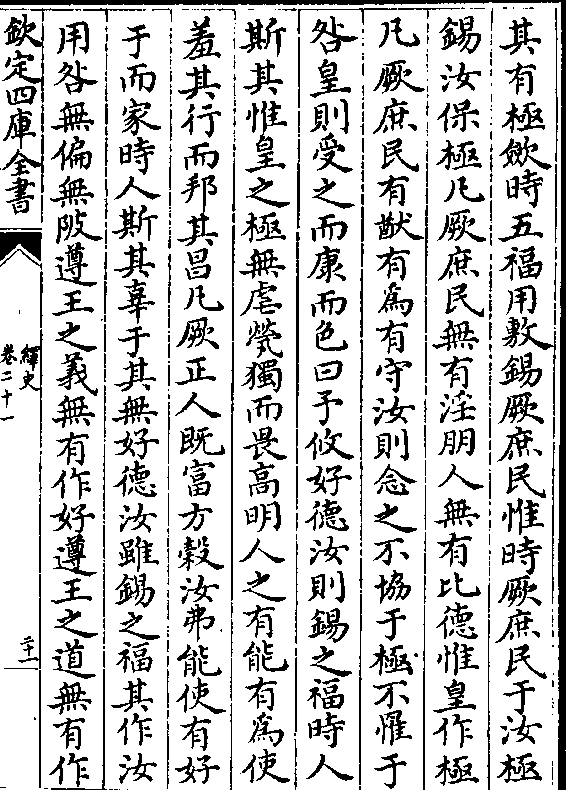 其有極斂時五福用敷錫厥庶民惟時厥庶民于汝極
錫汝保極凡厥庶民無有淫朋人無有比德惟皇作極
凡厥庶民有猷有為有守汝則念之不協于極不罹于
咎皇則受之而康而色曰予攸好德汝則錫之福時人
斯其惟皇之極無虐煢獨而畏高明人之有能有為使
羞其行而邦其昌凡厥正人既富方榖汝弗能使有好
于而家時人斯其辜于其無好德汝雖錫之福其作汝
用咎無偏無陂遵王之義無有作好遵王之道無有作
欽定四庫全書
繹史
卷二十一
二十一